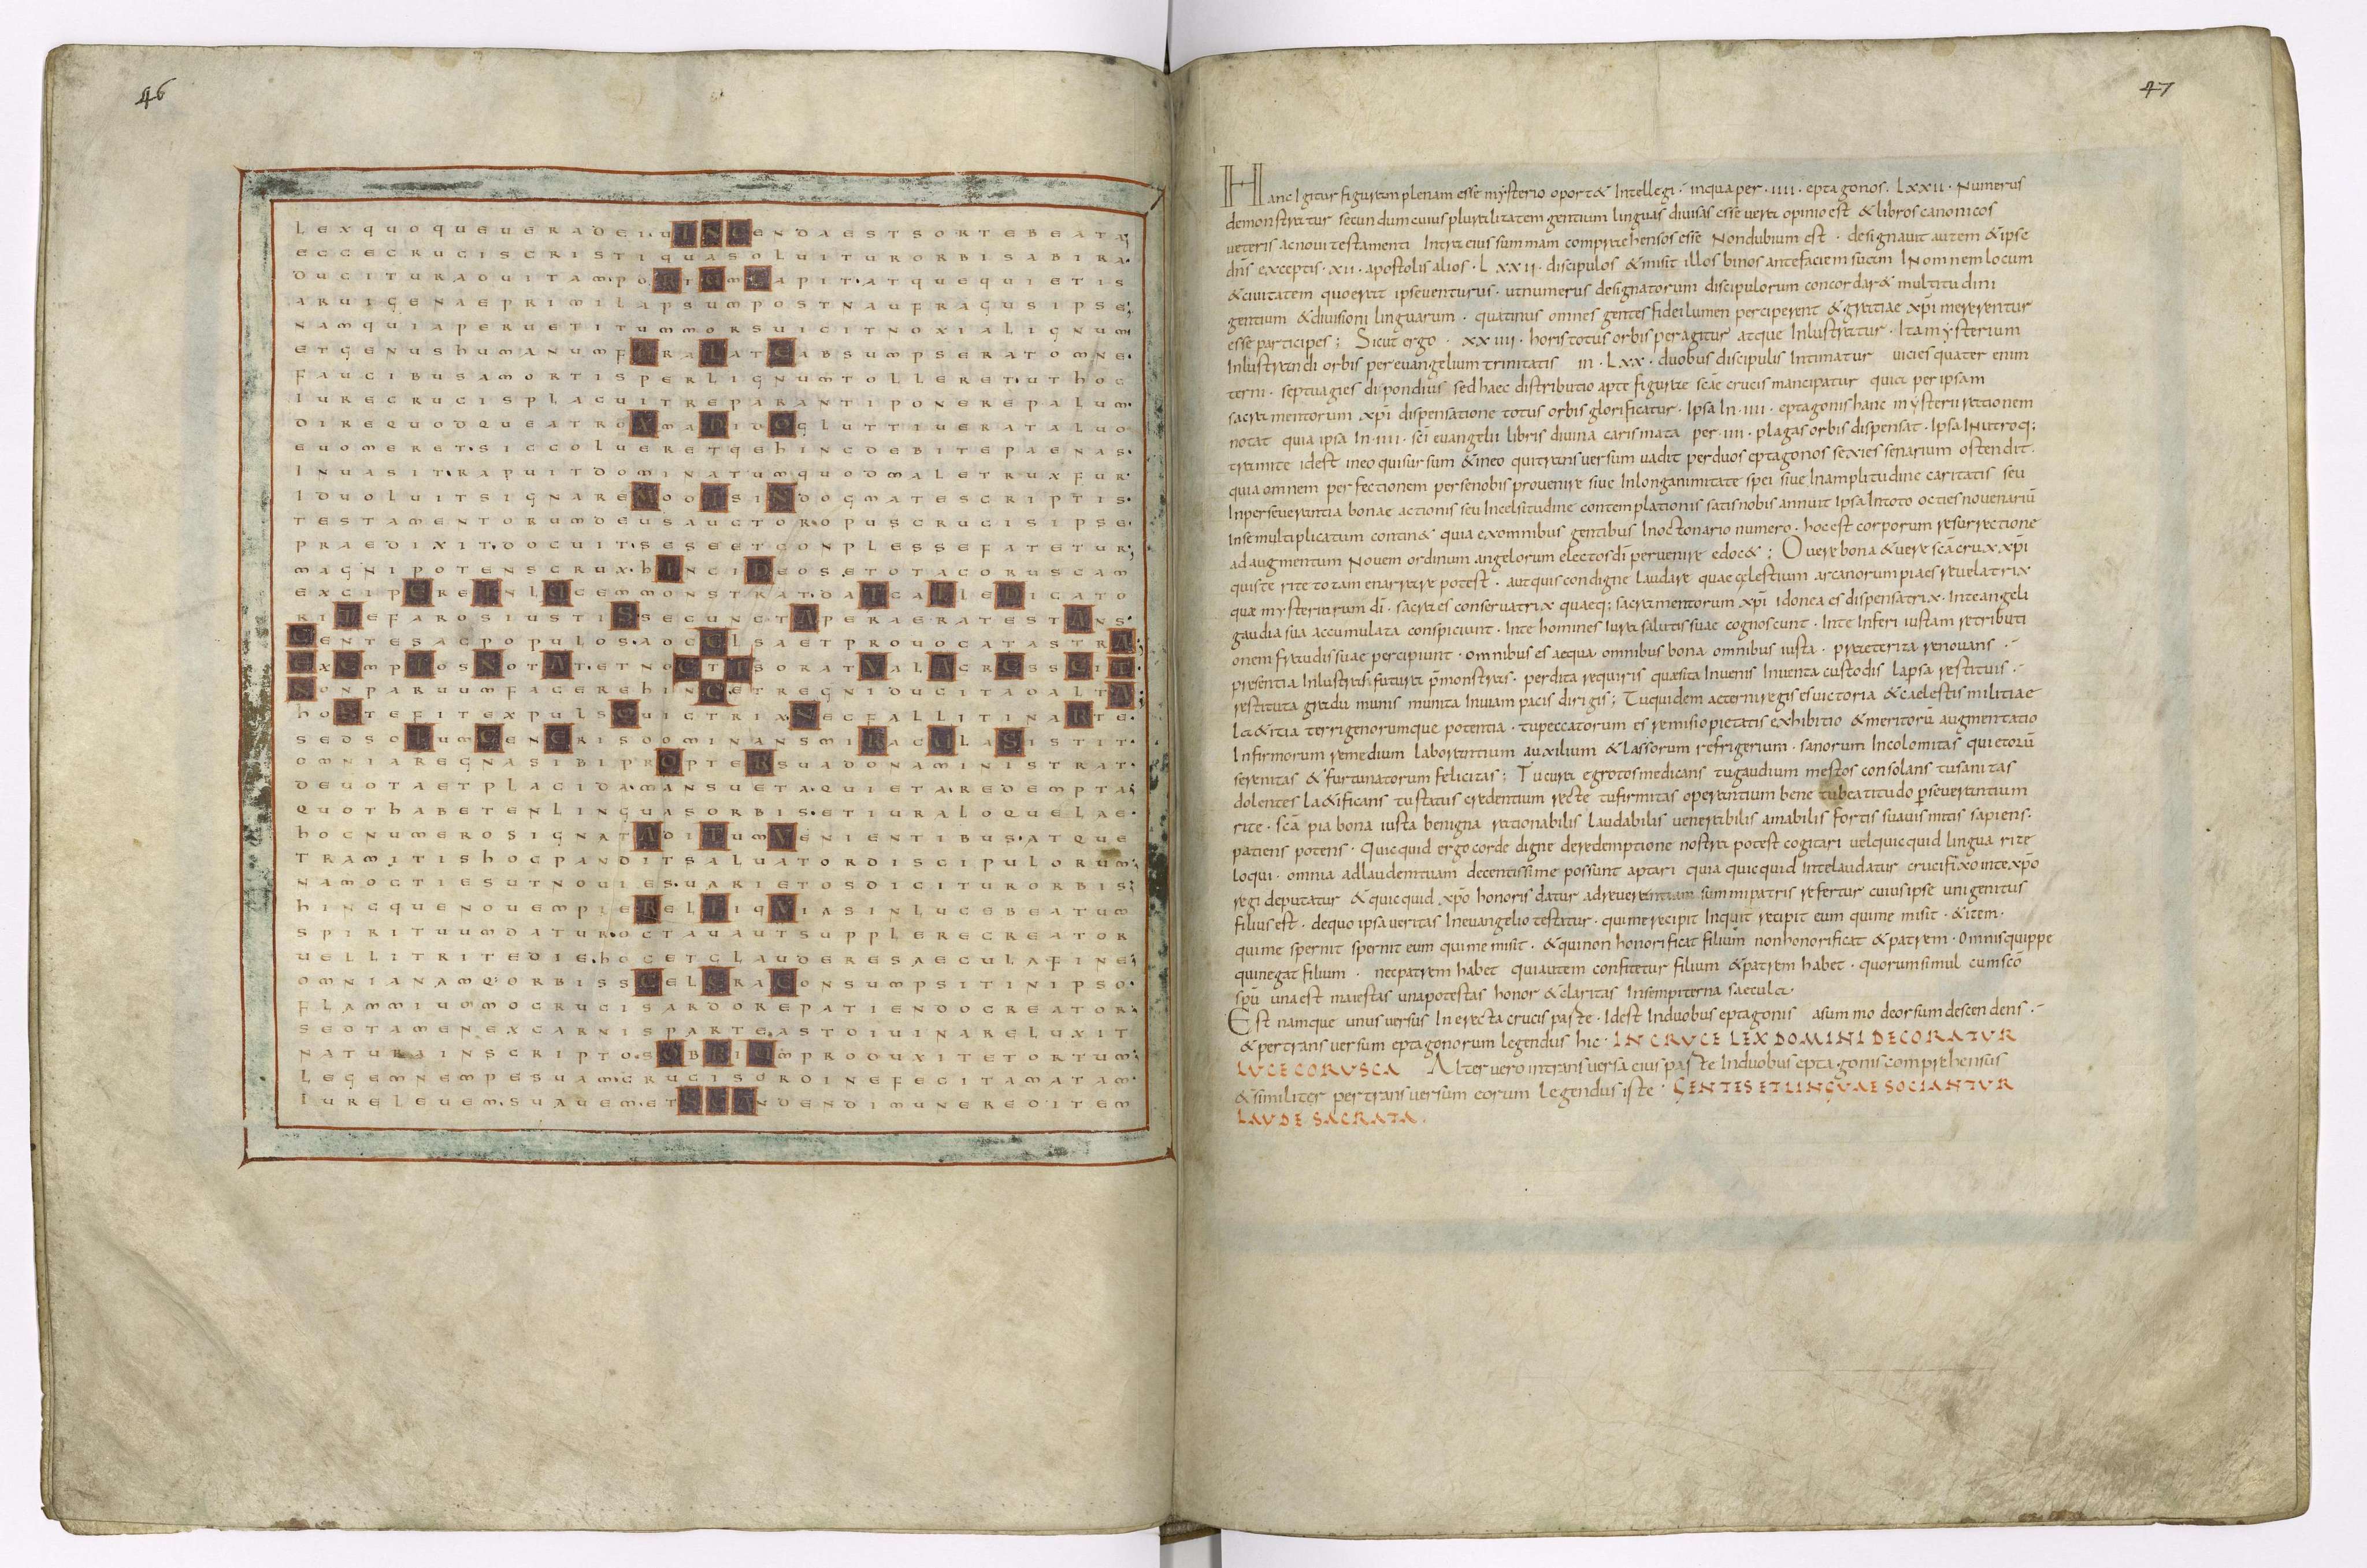 46
LEXQUOQUEUERADEI·UINCENDAESTSORTEBEATA;
ECCECRUCISCRISTIQUASOLUITURORBISABIRA·
DUCITURADUITAM·PORTAMCAPIT·ATQUEQUIETIS
ARUIGENAEPRIMILAPSUMPOSTNAUFRAGUSIPSE;
NAMQUIAPERUETITUMMORSUICITNOXIALIGNUM
ETGENUSHUMANUMFERALATEABSUMPSERATOMNE·
FAUCIBUSAMORTISPERLIGNUMTOLLERET·UTHOC
IURECRUCISPLACUITREPARANTIPONEREPALUM·
DIREQUODQUEATROXMADIDOGLUTTIUERATALUO
EUOMERET·SICCOLUERETQEHINCDEBITEPAENAS·
INUASIT·RAPUITDOMINATUMQUODMALETRUXFUR·
IDUOLUITSIGNAREMODISINDOGMATESCRIPTIS·
TESTAMENTORUMDEUSAUCTOR·OPUSCRUCISIPSE·
PRAEDIXIT·DOCUIT·SESEETCONPLESSEFATETUR;
MAGNIPOTENSCRUX·HINCIDEOSETOTACORUSCAM
EXCIPEREINLUCEMMONSTRAT·DATCALLEDICATO
RITEFAROSIUSTISSECUNCTAPERAERATESTANS·
GENTESACPOPULOS·ADCELSAETPROUOCATASTRA;
EXEMPTOSNOTAT·ETNOCTISORATUALACRESSCIT
NONPARUUMFACEREHINCETREGNIDUCITADALTA
HOSTEFITEXPULSOUICTRIXNECFALLITINARTE·
SEDSOLUMGENERISDOMINANSMIRACULASISTIT·
OMNIAREGNASIBIPROPTERSUADONAMINISTRAT·
DEUOTAETPLACIDA·MANSUETA·QUIETA·REDEMPTA;
QUOTHABETENLINGUASORBIS·ETIURALOQUELAE·
HOCNUMEROSIGNATADITUMVENIENTIBUS·ATQUE
TRAMITISHOCPANDITSALUATORDISCIPULORUM·
NAMOCTIESUTNOUIES·UARIETOSDICITURORBIS;
HINCQUENOUEMPLERELIQVIASINLUCEBEATUM
SPIRITUUMDATUR·OCTAUAUTSUPPLERECREATOR
UELLITRITEDIE·HOCETCLAUDERESAECULAFINE;
OMNIANAMQ:ORBISSCELERACONSUMPSITINIPSO·
FLAMMIUOMOCRUCISARDOREPATIENDOCREATOR·
SEDTAMENEXCARNISPARTE·ASTDIUINARELUXIT
NATURAINSCRIPTO·SOBRIUMPRODUXITETORTUM;
LEGEMNEMPESUAM·CRUCISORDINEFECITAMATAM·
IURELEUEM·SUAUEM·ETSCANDENDIMUNEREDITEM
47
Hanc Igitur figuram plenam esse mysterio oport& Intellegi · inqua per · IIII · eptagonos · LXXII · Numerus
demonstratur secundum cuius pluralitatem gentium linguas divisas esse vera opinio est & libros canonicos
veteris ac novi testamenti Intra eius summam comprehensos esse Non dubium est · designavit autem & ipse
dñs exceptis · XII · apostolis alios · LXXII · discipulos & misit illos binos ante faciem suam In omnem locum
& civitatem quo erat ipse venturus · ut numerus designatorum discipulorum concordar& multitudini
gentium & divisioni linguarum · quatinus omnes gentes fidei lumen perciperent & gratiae xp̄i mererentur
esse participes ; Sicut ergo · XXIIII · horis totus orbis peragitur atque Inlustratur · Ita mysterium
Inlustrandi orbis per evangelium trinitatis in · LXX · duobus discipulis Intimatur vicies quater enim
terni · septuagies dipondius sed haec distributio apte figurae scāe crucis mancipatur quia per ipsam
sacramentorum xp̄i dispensatione totus orbis glorificatur · Ipsa In · IIII · eptagonis hanc mysterii rationem
notat quia ipsa In · IIII · sc̄i evangelii libris divina carismata per · IIII · plagas orbis dispensat · Ipsa In utroq;
tramite idest in eo qui sursum & in eo qui transversum vadit per duos eptagonos sexies senarium ostendit ·
quia omnem perfectionem per se nobis provenire sive In longanimitate spei sive In amplitudine caritatis seu
In perseverantia bonae actionis seu In celsitudine contemplationis satis nobis annuit Ipsa In toto octies novenariū
In se multiplicatum contin& quia ex omnibus gentibus In octonario numero · hoc est corporum resurrectione
ad augmentum Novem ordinum angelorum electos dī pervenire edoc& ; O vere bona & vere scā crux xp̄i
quis te rite totam enarrare potest · aut quis condigne laudare quae cęlestium arcanorum pia es revelatrix
quae mysteriorum dī · sacra es conservatrix quaeq; sacramentorum xp̄i idonea es dispensatrix · In te angeli
gaudia sua accumulata conspiciunt · In te homines Iura salutis suae cognoscunt · In te Inferi iustam retributi
onem fraudis suae percipiunt · omnibus es aequa · omnibus bona omnibus iusta · praeterita renovans ·
presentia Inlustras · futura p̄monstras · perdita requiris quaesita Invenis Inventa custodis lapsa restituis ·
restituta gradu munis munita In viam pacis dirigis ; Tu quidem aeterni regis es victoria & caelestis militiae
La&itia terrigenorumque potentia · tu peccatorum es remisio pietatis exhibitio & meritorū augmentatio
Infirmorum remedium laborantium auxilium & lassorum refrigerium · sanorum Incolomitas quietorū
serenitas & furtunatorum felicitas ; Tu cura egrotos medicans tu gaudium mestos consolans tu sanitas
dolentes la&ificans tu status credentium recte tu firmitas operantium bene tu beatitudo p̄severantium
rite · scā pia bona iusta benigna rationabilis laudabilis venerabilis amabilis fortis suavis mitis sapiens ·
patiens potens · Quicquid ergo corde digne de redemptione nostra potest cogitari vel quicquid lingua rite
loqui · omnia ad laudem tuam decentissime possunt aptari quia quicquid In te laudatur crucifixo in te xp̄o
regi deputatur & quicquid xp̄o honoris datur ad reverentiam summi patris refertur cuius ipse unigenitus
filius est · de quo ipsa veritas In evangelio testatur · qui me recipit Inquit recipit eum qui me misit · & item ·
qui me spernit spernit eum qui me misit · & qui non honorificat filium non honorificat & patrem · Omnis quippe
qui negat filium · nec patrem habet qui autem confitetur filium & patrem habet · quorum simul cum scō
sp̄u una est maiestas una potestas honor & claritas In sempiterna saecula ·
Est namque unus versus In erecta crucis parte · Idest In duobus eptagonis a summo deorsum descendens ·
& per transversum eptagonorum legendus hic · IN CRVCE LEX DOMINI DECORATVR
LVCE CORVSCA Alter vero in transversa eius parte In duobus eptagonis comprehensus
& similiter per transversum eorum legendus iste · GENTES ET LINGVAE SOCIANTVR
LAVDE SACRATA ·